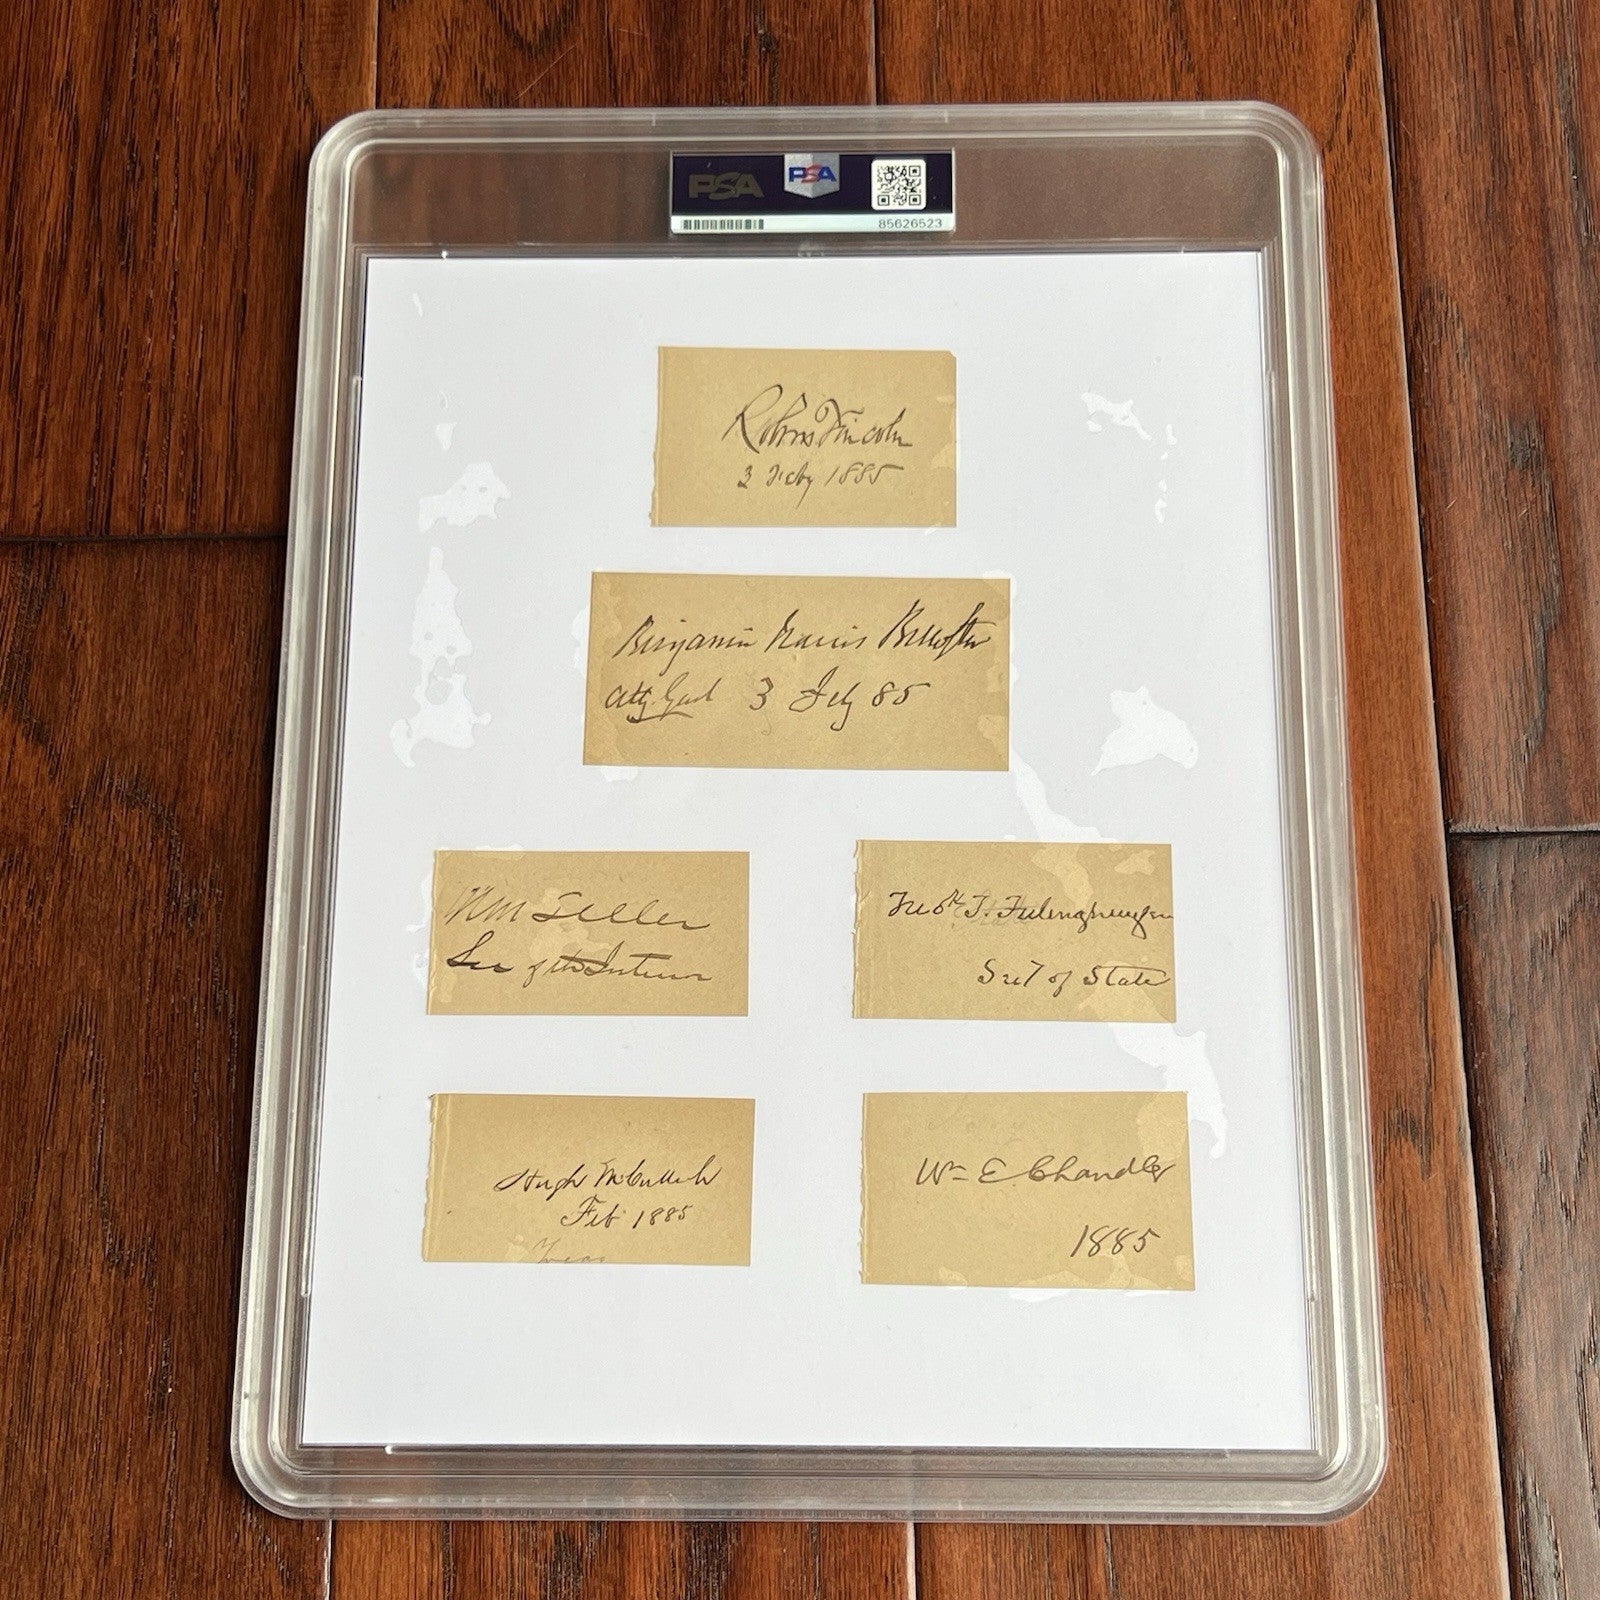 PSA
PSA
85626523
Robt T Lincoln
3 Feby 1885
Benjamin Harris Brewster
Atty Genl 3 Feby 85
HM Teller
Sec of the Interior
Fredk T. Frelinghuysen
Secy of State
Hugh McCulloch
Feb 1885
Treas
Wm E. Chandler
1885